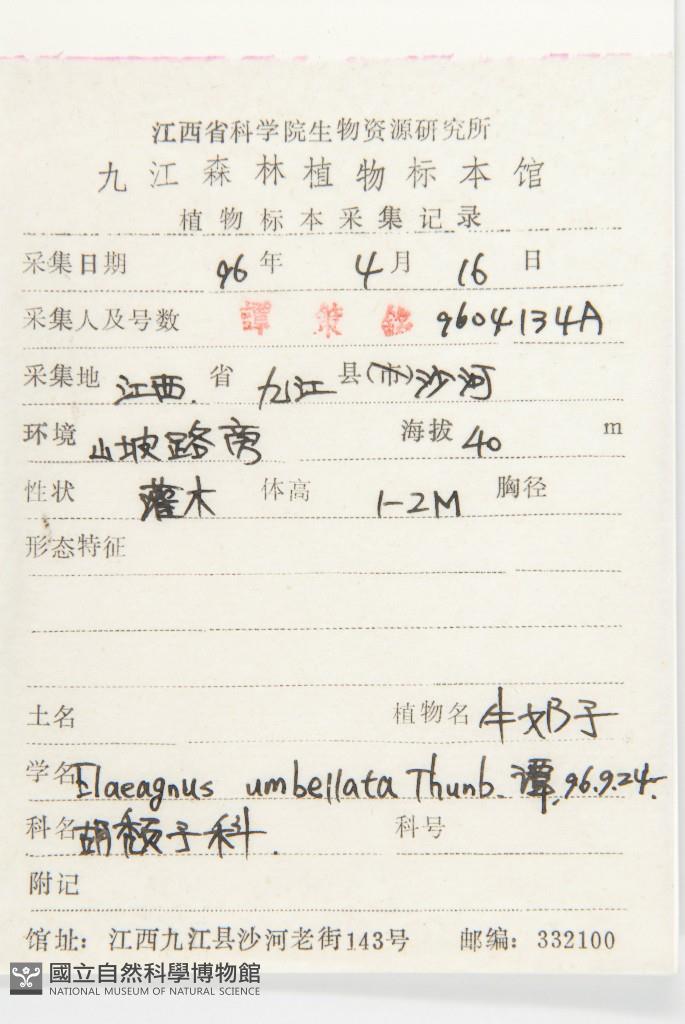 江西省科学院生物资源研究所
九江森林植物标本馆
植物标本采集记录
采集日期 96年 4月 16日
采集人及号数 譚策铭 9604134A
采集地 江西省 九江县(市)沙河
环境 山坡路旁 海拔 40 m
性状 灌木 体高 1-2M 胸径
形态特征
土名 植物名 牛奶子
学名 Elaeagnus umbellata Thunb. 潭, 96.9.24.
科名 胡颓子科. 科号
附记
馆址：江西九江县沙河老街143号 邮编：332100
國立自然科學博物館
NATIONAL MUSEUM OF NATURAL SCIENCE